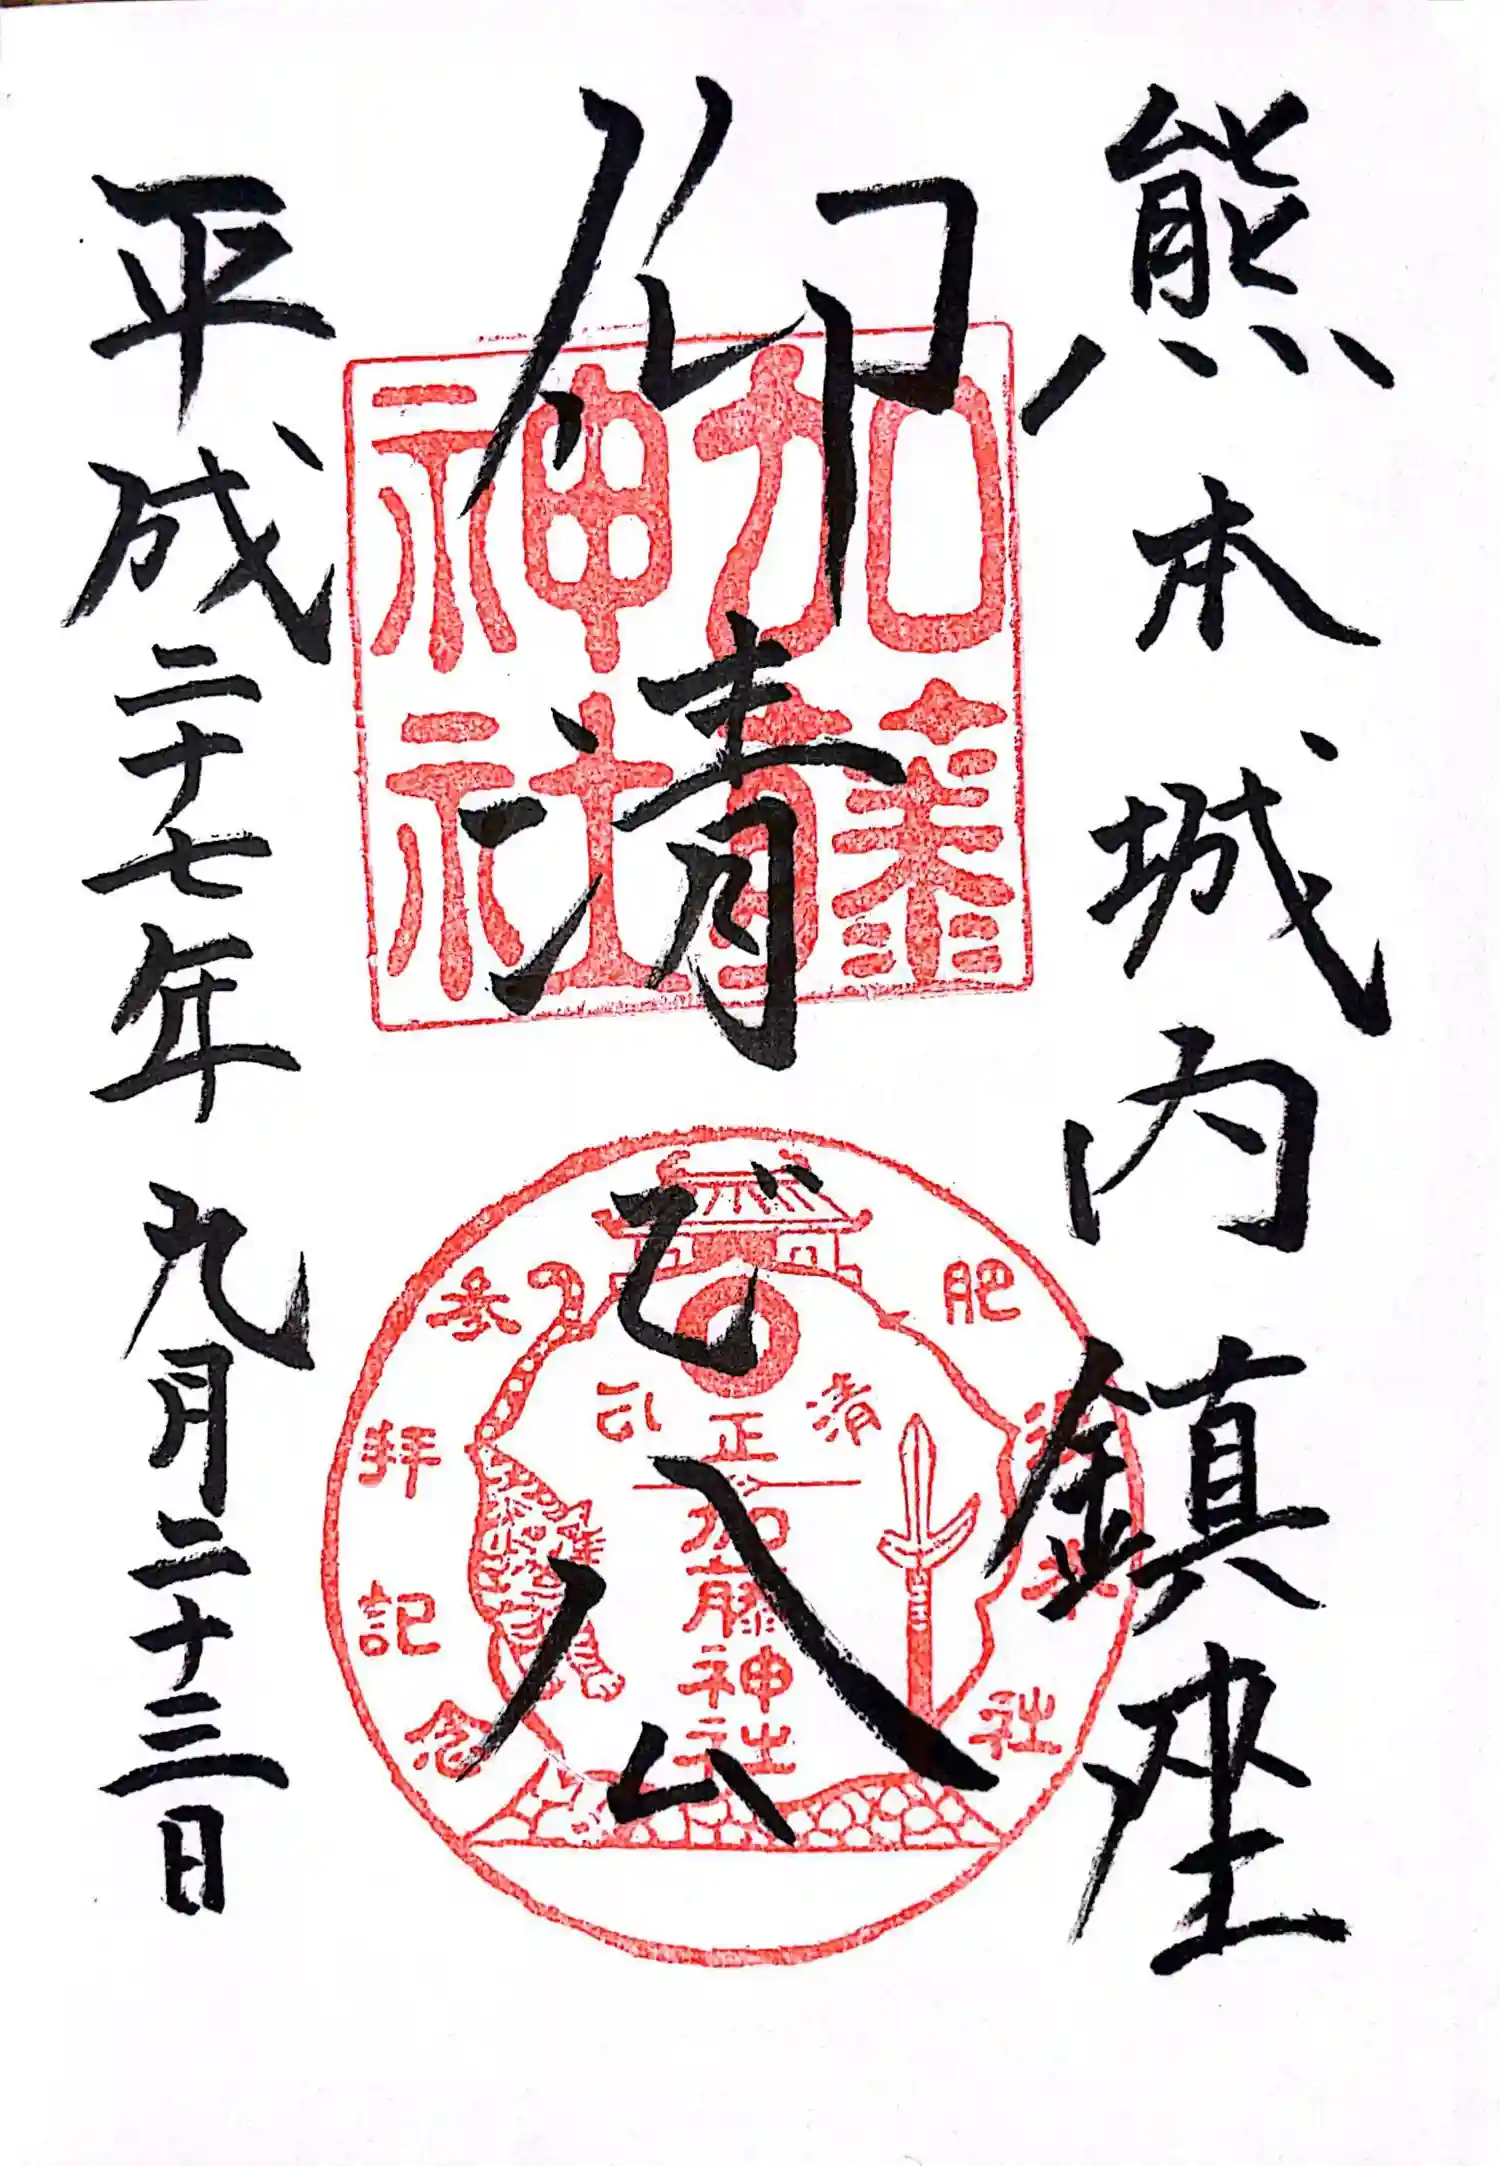 熊本城内鎮座
仰清正公
平成二十七年九月二十三日
加藤神社
肥後本社
参拝記念
清正公
加藤神社